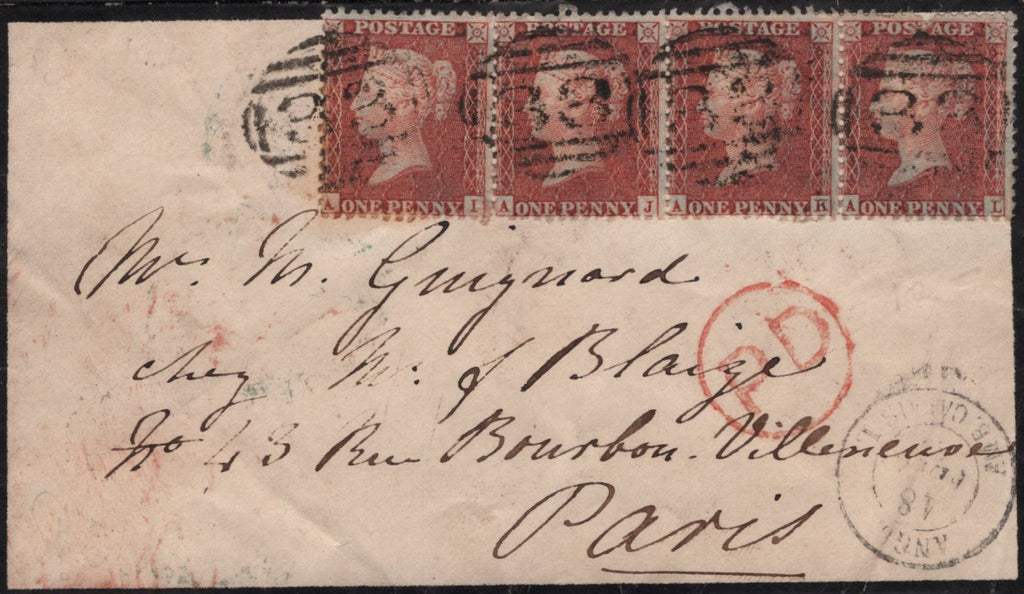 POSTAGE POSTAGE POSTAGE POSTAGE
A ONE PENNY I A ONE PENNY J A ONE PENNY K A ONE PENNY L
Mr. M. Guignard
chez Mr. J Blaize
No 43 Rue Bourbon. Villeneuve
Paris
PD
ANGL. AMB. CALAIS
18